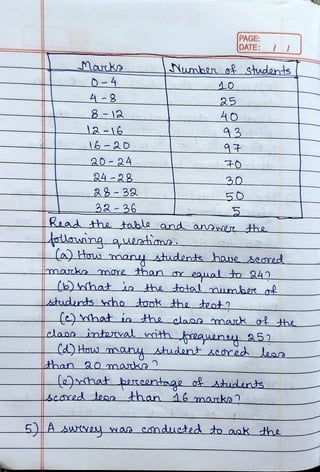 PAGE:
DATE: / /
Marks Number of students
0-4 10
4-8 25
8-12 40
12-16 93
16-20 97
20-24 70
24-28 30
28-32 50
32-36 5
Read the table and answer the
following questions.
(a) How many students have scored
marks more than or equal to 24?
(b) What is the total number of
students who took the test?
(c) What is the class mark of the
class interval with frequency 25?
(d) How many student scored less
than 20 marks?
(e) What percentage of students
scored less than 16 marks?
5) A survey was conducted to ask the